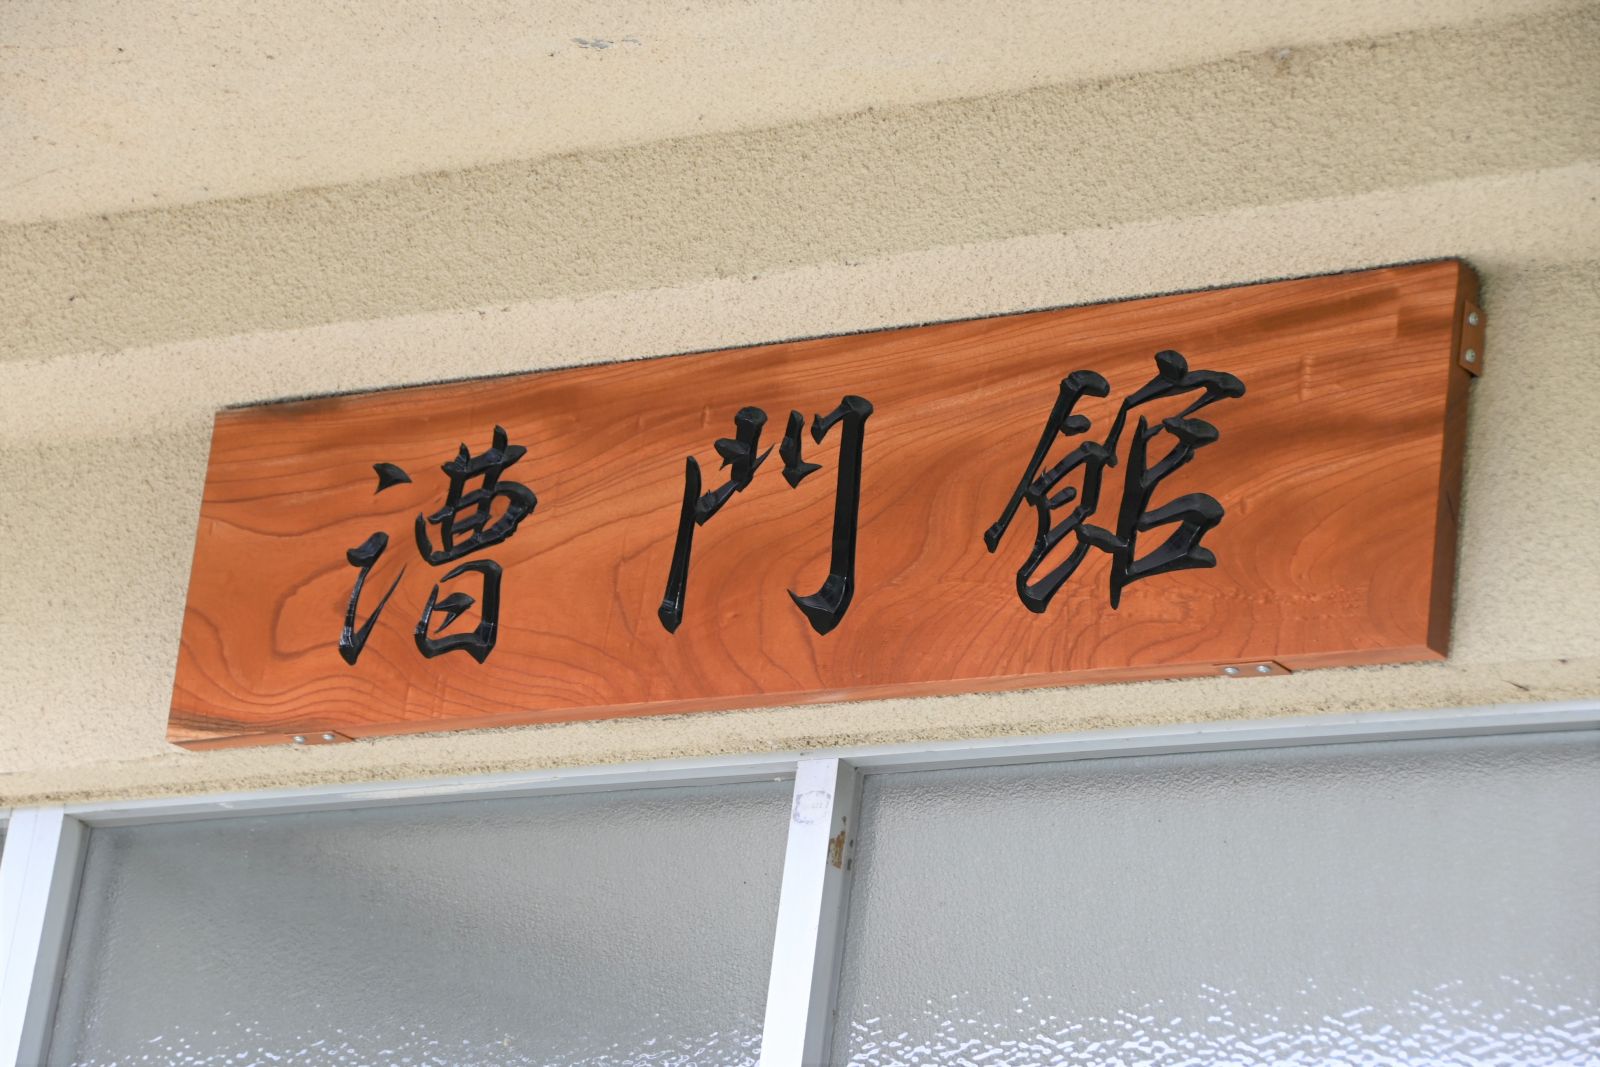 漕門館